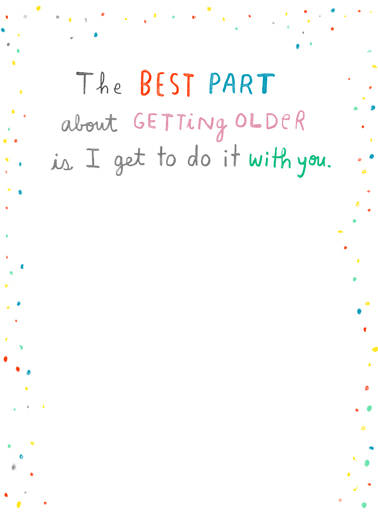 The BEST PART
about GETTiNg OLDeR
is I get to do it with you.